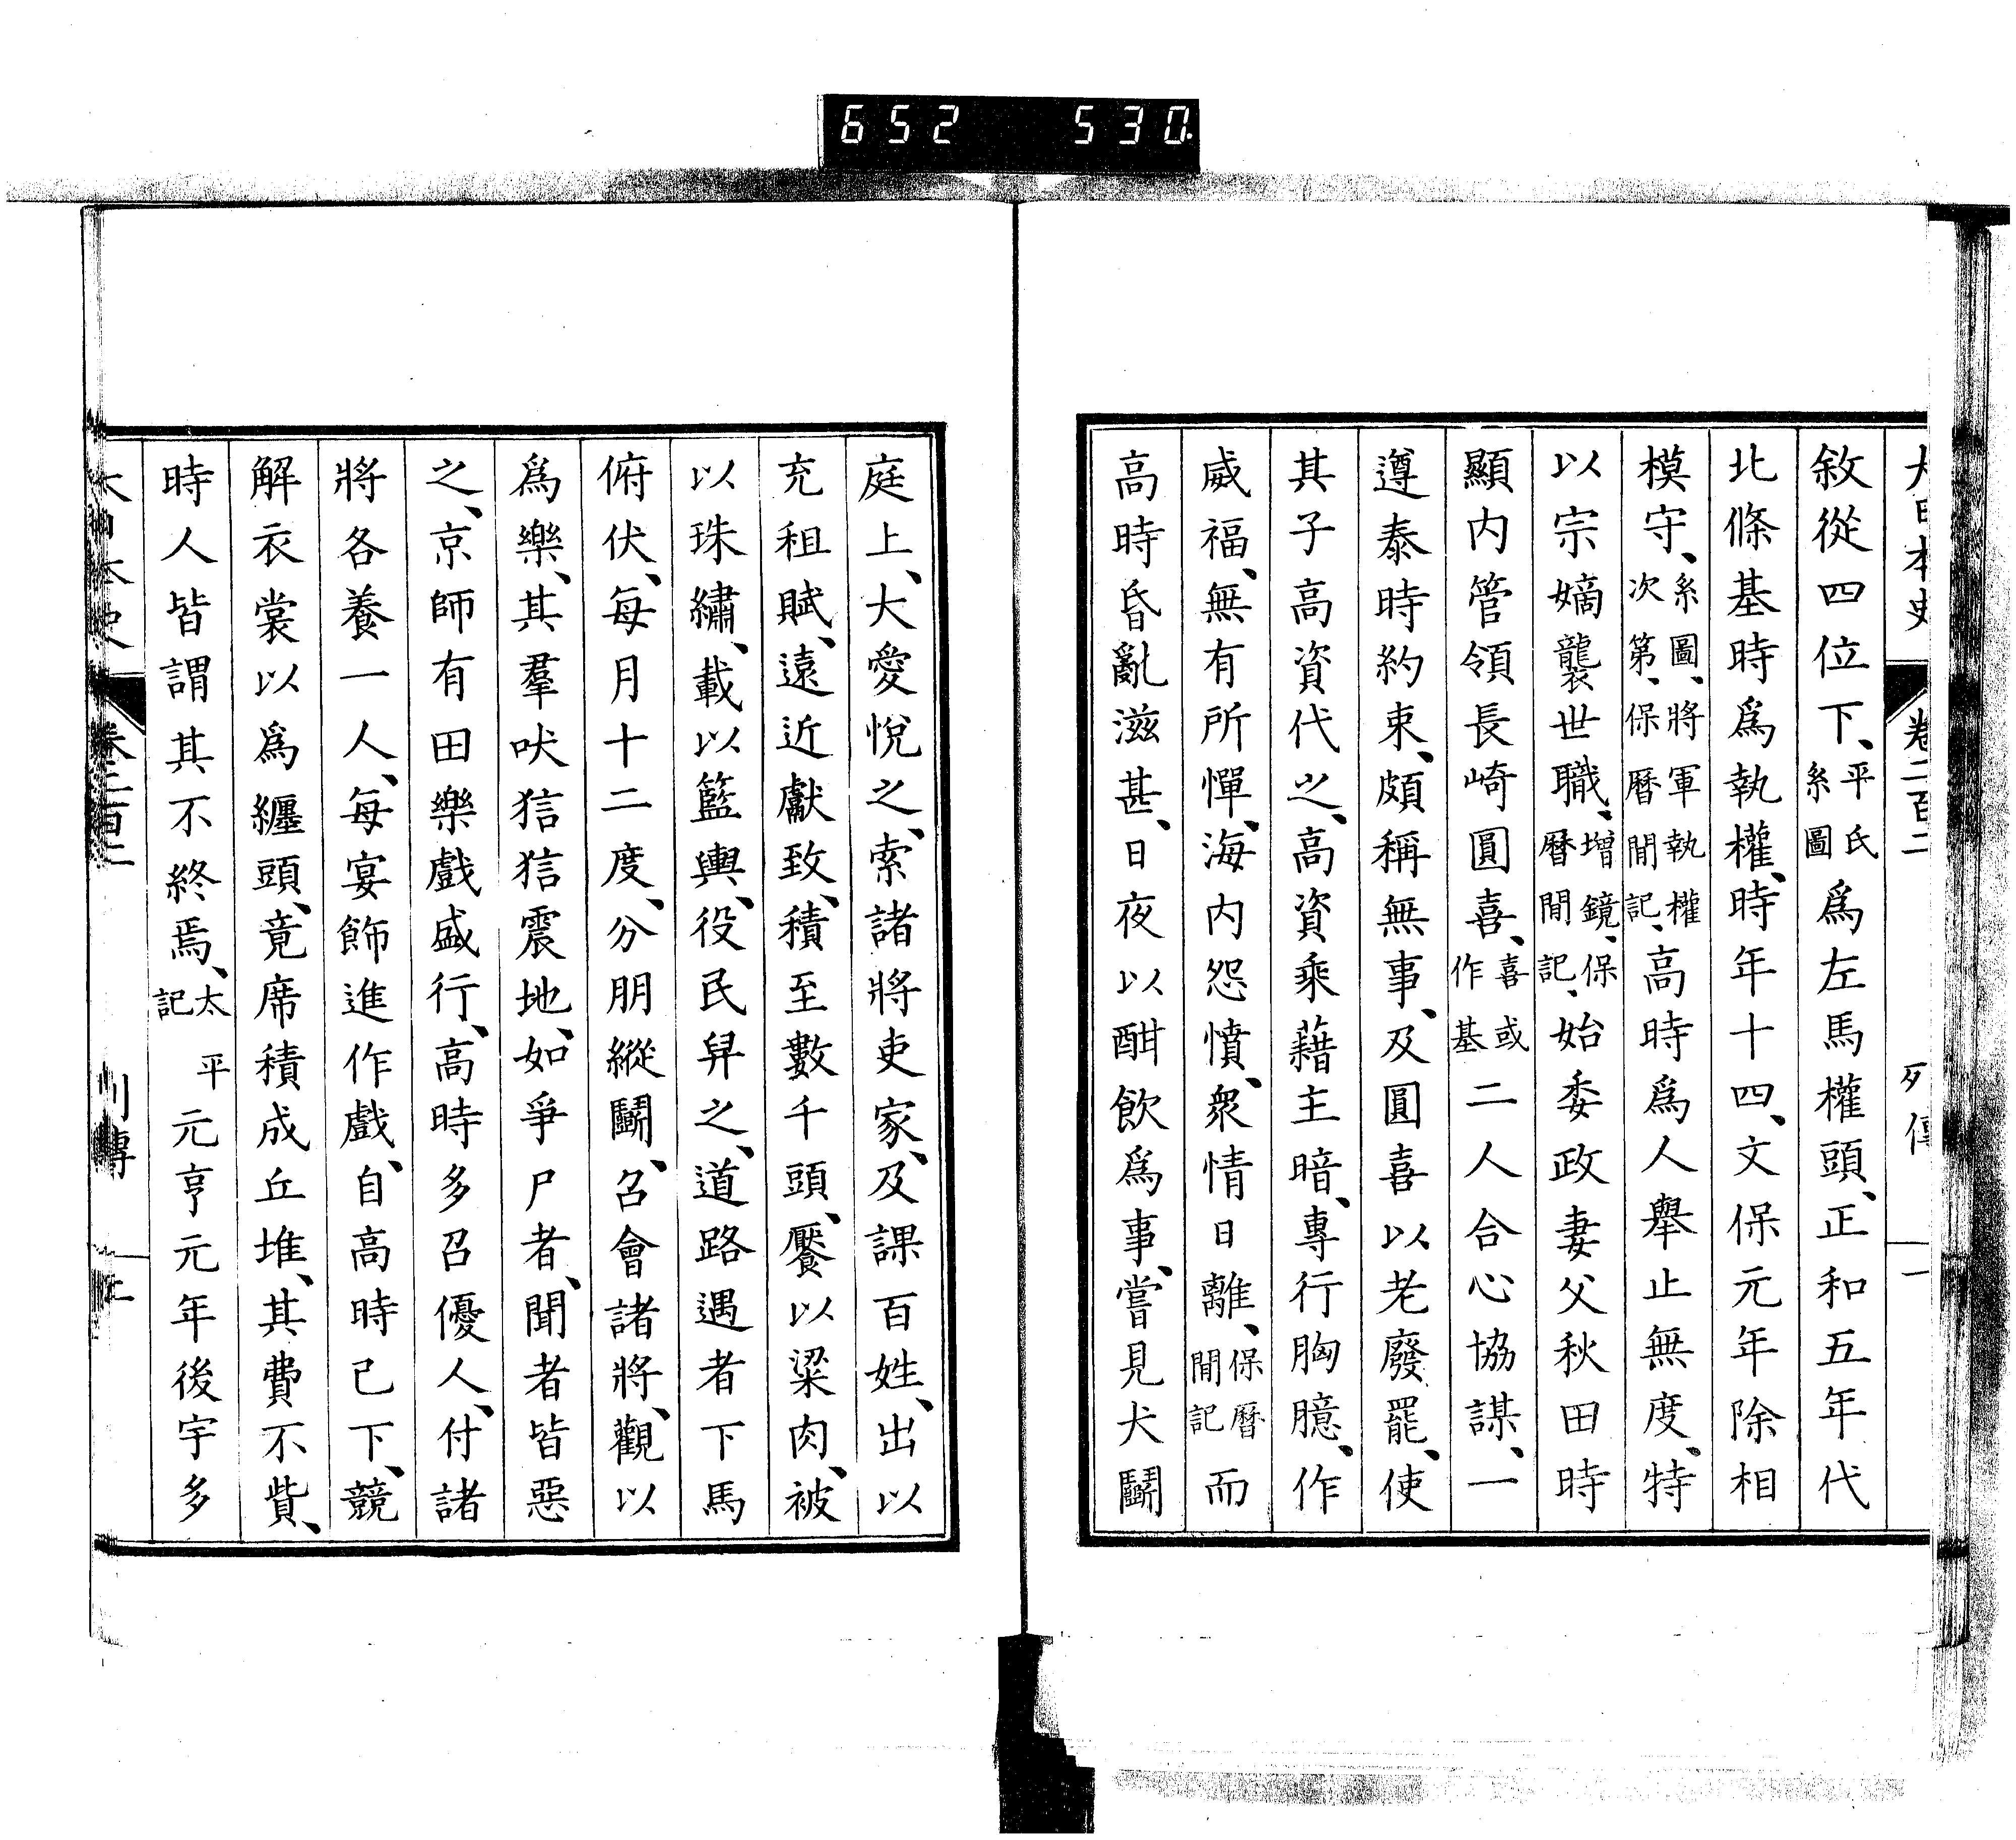 652 530
大日本史 卷二百二 列傳 一
敘從四位下、平氏系圖爲左馬權頭、正和五年代
北條基時爲執權、時年十四、文保元年除相
模守、系圖、將軍執權次第、保曆間記、高時爲人舉止無度、特
以宗嫡襲世職、增鏡、保曆間記、始委政妻父秋田時
顯內管領長崎圓喜、喜或作基二人合心協謀、一
遵泰時約束、頗稱無事、及圓喜以老廢罷、使
其子高資代之、高資乘藉主暗、專行胸臆、作
威福、無有所憚、海內怨憤、衆情日離、保曆間記而
高時昏亂滋甚、日夜以酣飲爲事、嘗見犬鬭
庭上、大愛悅之、索諸將吏家、及課百姓、出以
充租賦、遠近獻致、積至數千頭、饜以粱肉、被
以珠繡、載以籃輿、役民舁之、道路遇者下馬
俯伏、每月十二度、分朋縱鬭、召會諸將、觀以
爲樂、其羣吠狺狺震地、如爭尸者、聞者皆惡
之、京師有田樂戲盛行、高時多召優人、付諸
將各養一人、每宴飾進作戲、自高時已下、競
解衣裳以爲纏頭、竟席積成丘堆、其費不貲、
時人皆謂其不終焉、太平記元亨元年後宇多
大日本史 卷二百二 列傳